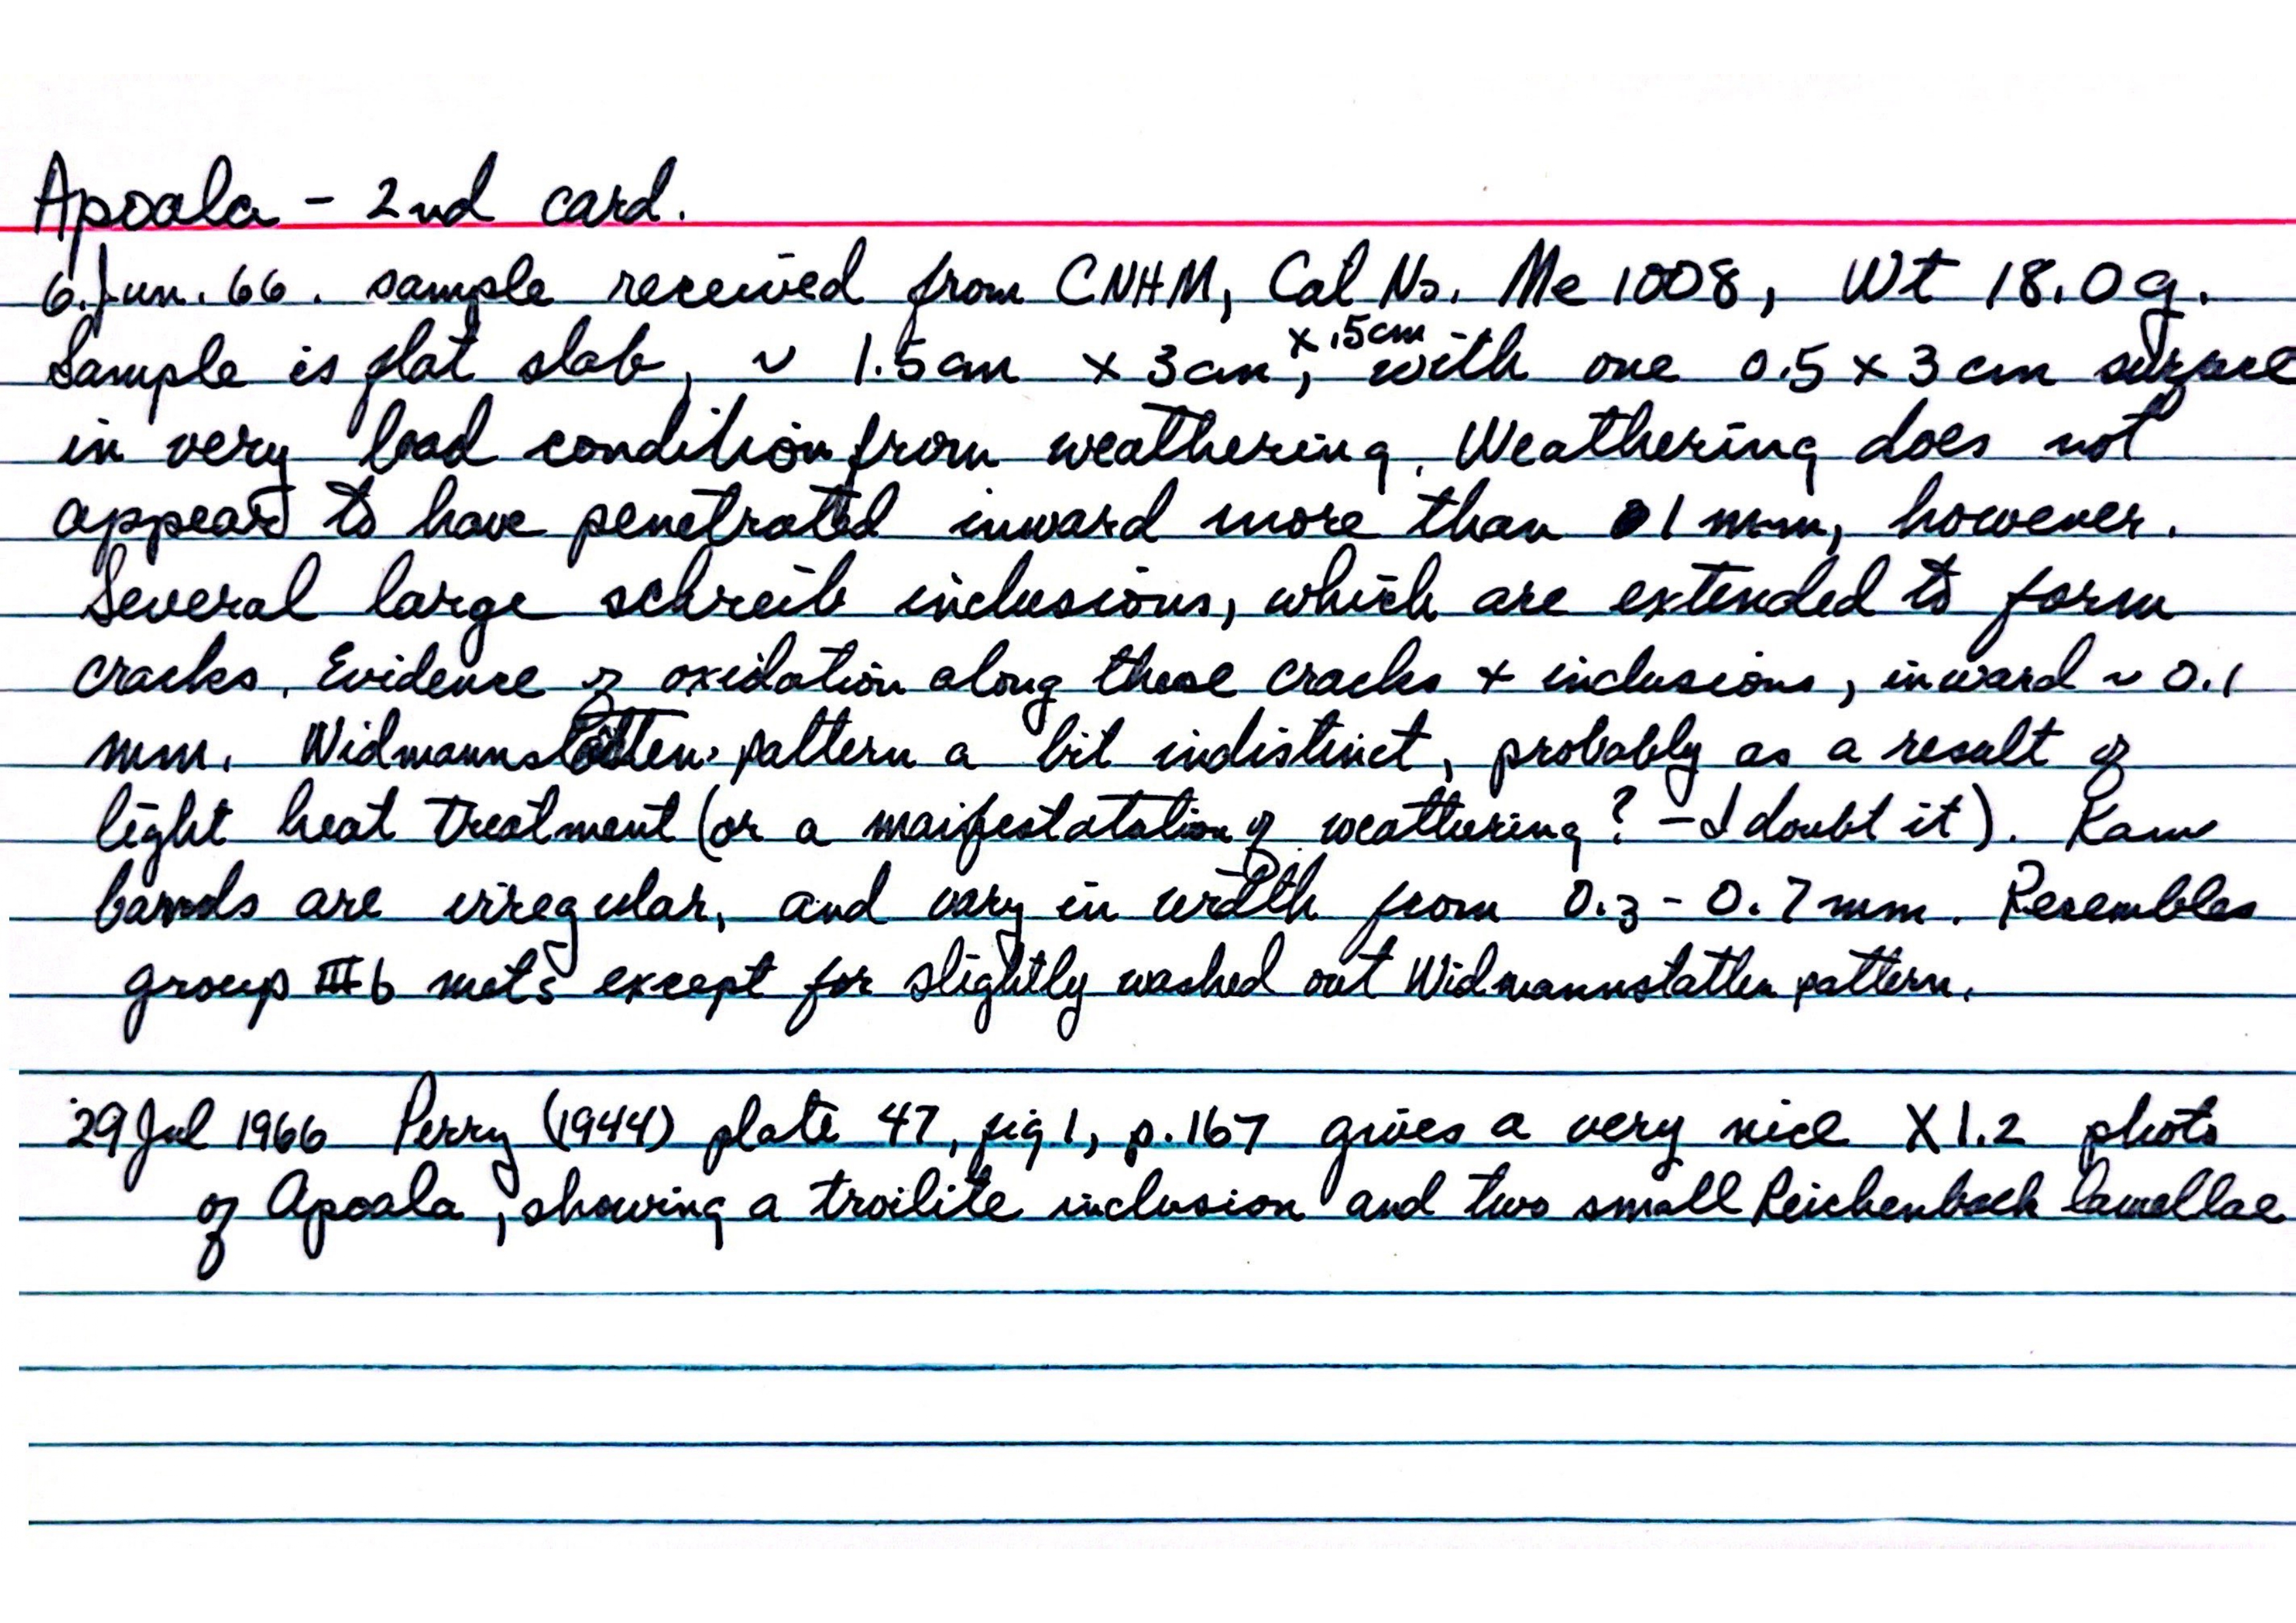 Apoala - 2nd card.
6.Jun.66. sample received from CNHM, Cat No. Me 1008, Wt 18.0g.
Sample is flat slab, ~ 1.5cm x 3cm x .5cm, with one 0.5 x 3cm surface
in very bad condition from weathering. Weathering does not
appear to have penetrated inward more than 1 mm, however.
Several large schreib inclusions, which are extended to form
cracks. Evidence of oxidation along these cracks + inclusions, inward ~ 0.1
mm. Widmannstatten pattern a bit indistinct, probably as a result of
light heat treatment (or a maifestatation of weathering? - I doubt it). Kam
bands are irregular, and vary in width from 0.3 - 0.7mm. Resembles
group IIIb mets except for slightly washed out Widmannstatten pattern.
29 Jul 1966 Perry (1944) plate 47, fig 1, p.167 gives a very nice X1.2 photo
of Apoala, showing a troilite inclusion and two small Reichenbach lamellae